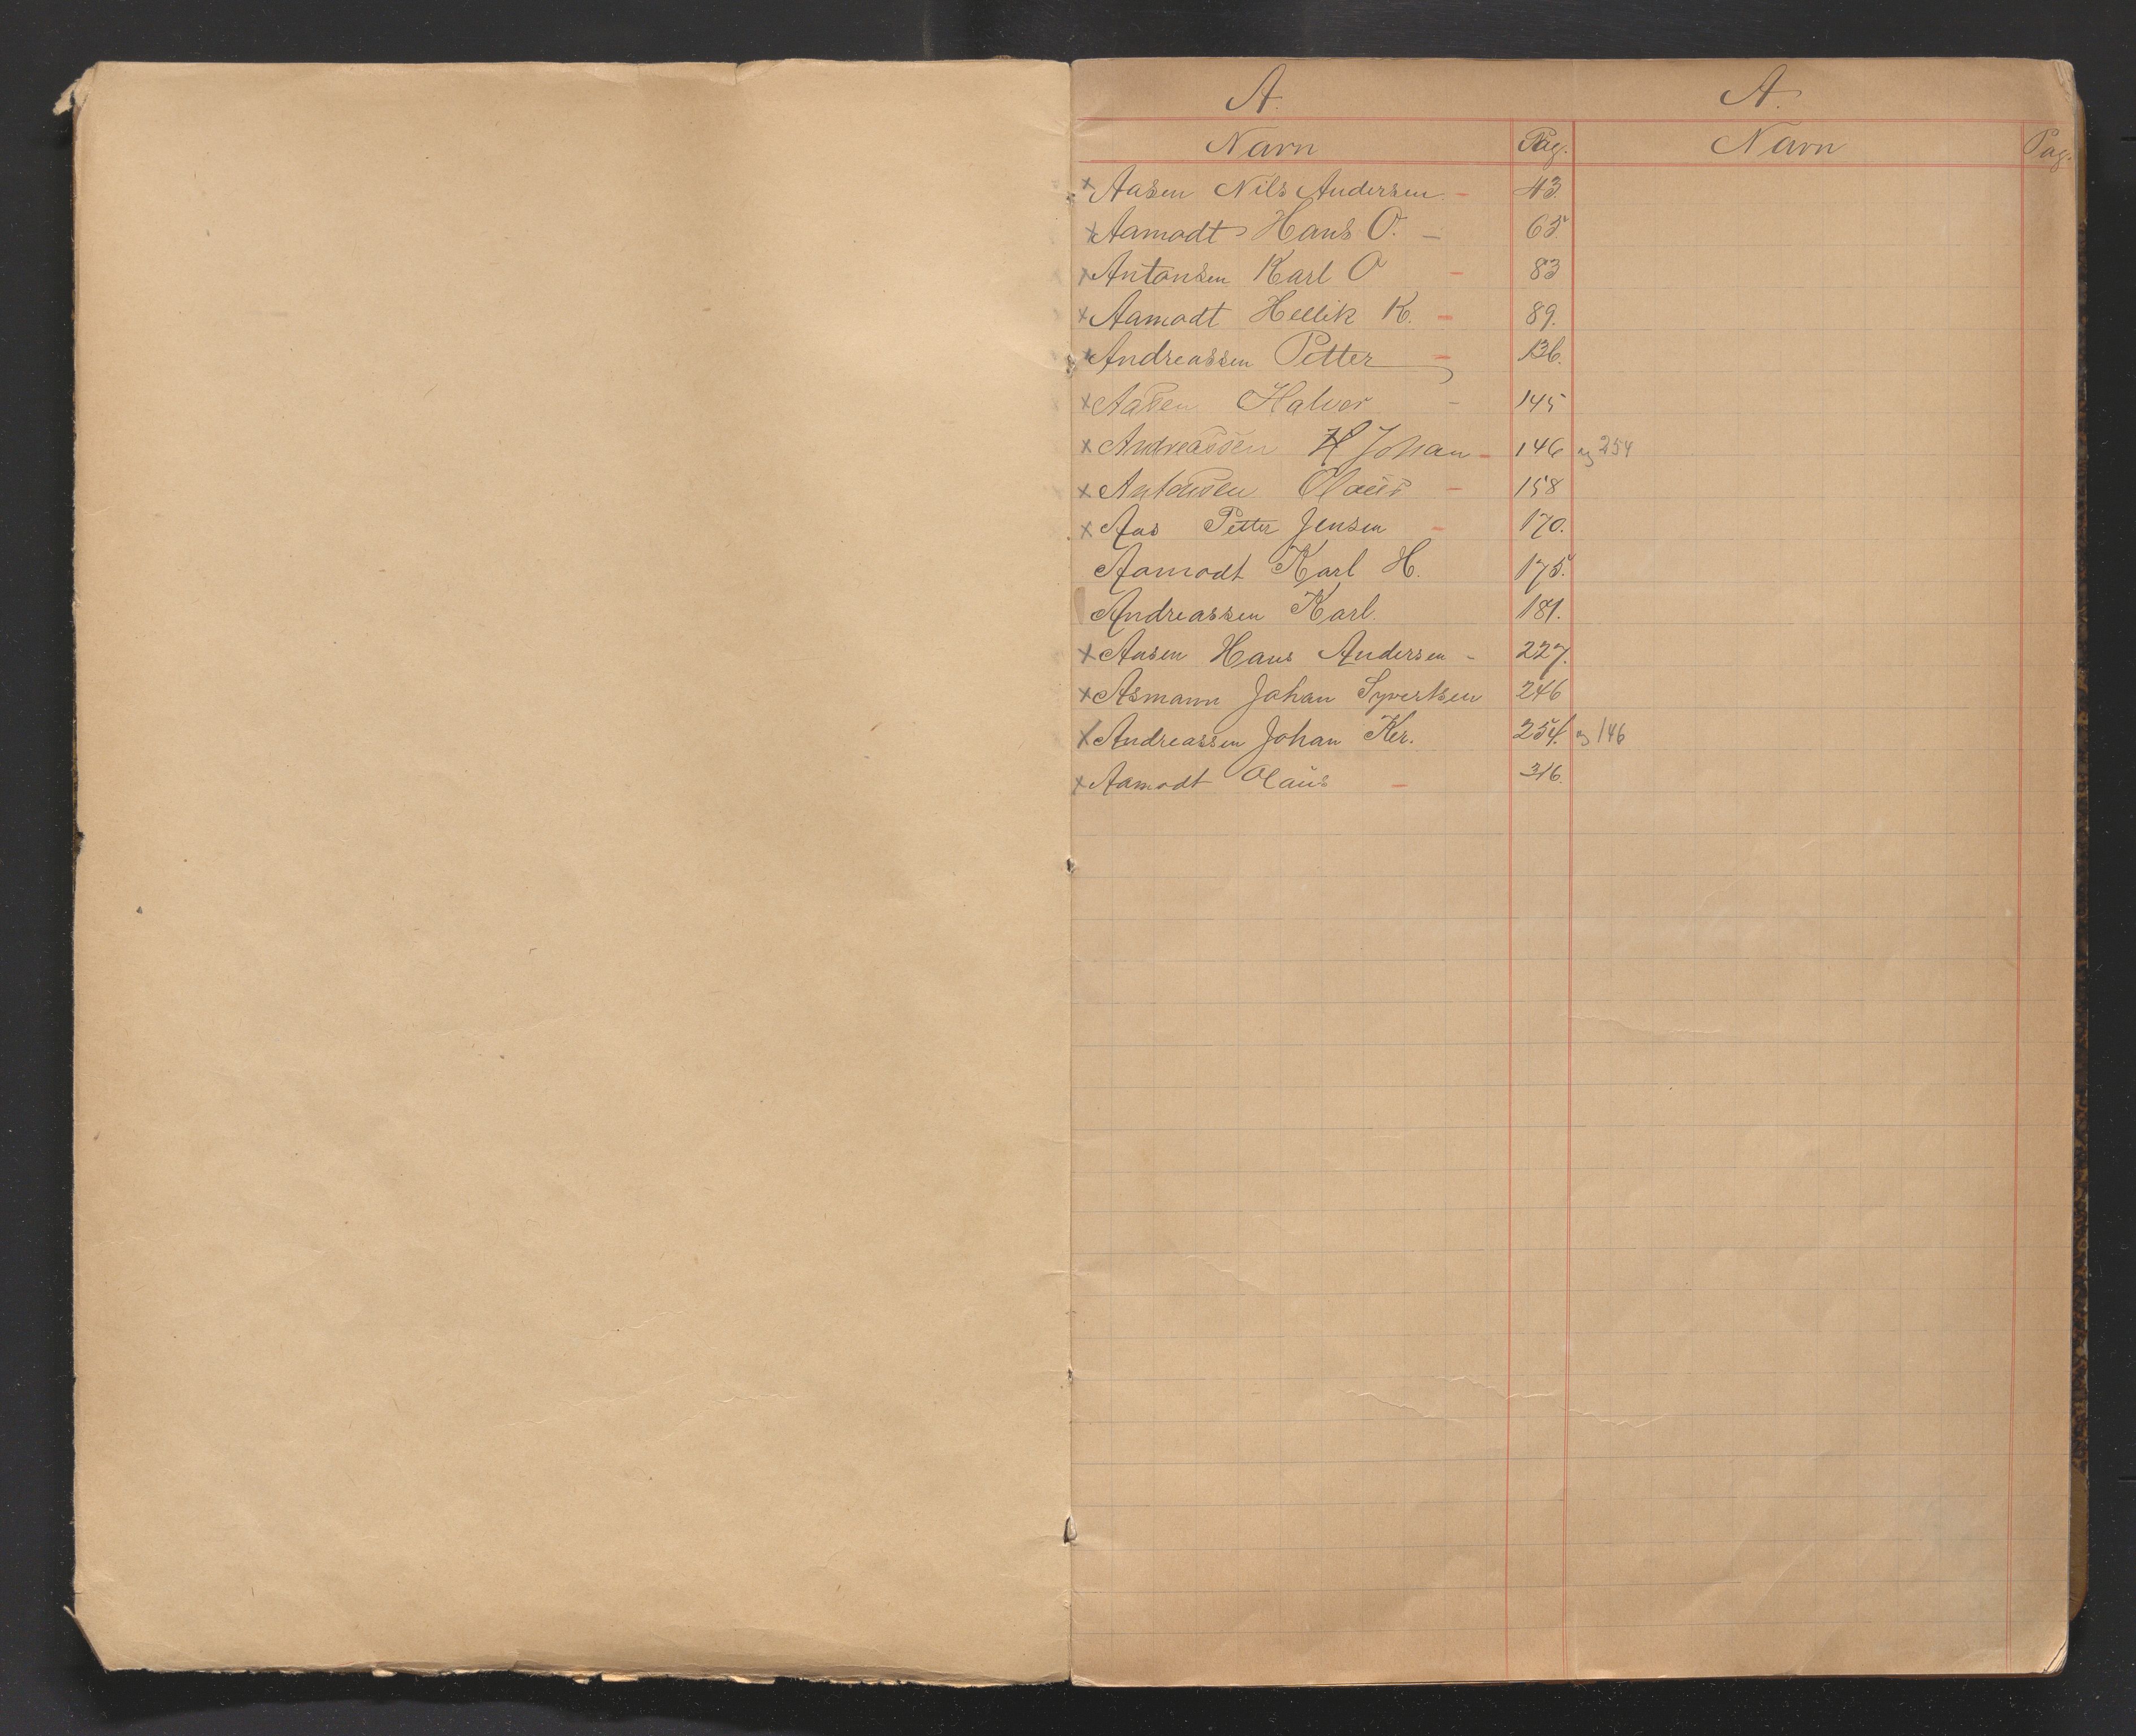 A. A.
Navn Pag. Navn Pag.
x Aasen Nils Andersen. - 43.
x Aamodt Hans O. - 65.
x Antonsen Karl O - 83
x Aamodt Hellik K. - 89.
x Andreassen Petter - 136.
x Aasen Halvor - 145
x Andreassen Johan - 146 og 254
x Antonsen Olaus - 158
x Aas Petter Jensen - 170.
Aamodt Karl H. 175.
Andreassen Karl. 181.
x Aasen Hans Andersen - 227.
x Asmann Johan Syvertsen 246
x Andreassen Johan Kr. 254. og 146
x Aamodt Olaus - 316.